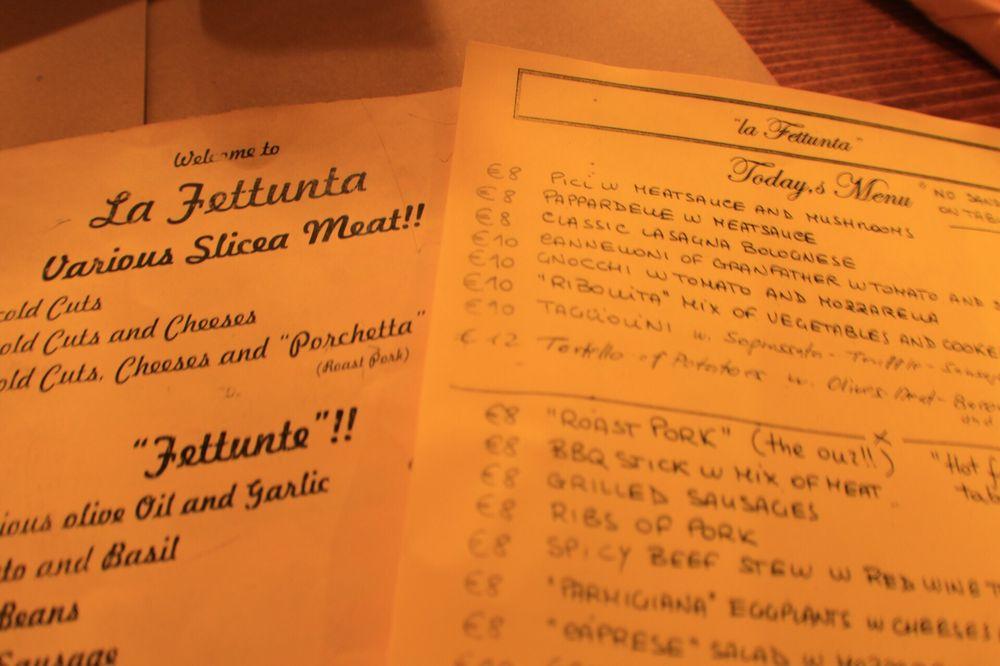 Welcome to
La Fettunta
Various Sliced Meat!!
cold Cuts
old Cuts and Cheeses
old Cuts, Cheeses and "Porchetta"
(Roast Pork)
"Fettunte"!!
ious olive Oil and Garlic
to and Basil
Beans
Sausage
"la Fettunta"
Today,s Menu
"NO
ON
€8 PICI W MEATSAUCE AND MUSHROOMS
€8 PAPPARDELLE W MEATSAUCE
€8 CLASSIC LASAGNA BOLOGNESE
€10 CANNELLONI OF GRANFATHER W TOMATO AND
€10 GNOCCHI W TOMATO AND MOZZARELLA
€10 "RIBOLLITA" MIX OF VEGETABLES AND COOKE
€10 TAGLIOLINI w. Soprassata - Truffle - Sausag
€12 Tortello of Potatoes w. Olives And
and
€8 "ROAST PORK" (the our!!)
"Hot f
€8 BBQ STICK W MIX OF MEAT
€8 GRILLED SAUSAGES
€8 RIBS OF PORK
€8 SPICY BEEF STEW W RED WINE
€8 "PARMIGIANA" EGGPLANTS W CHEESES
€8 "CAPRESE" SALAD W